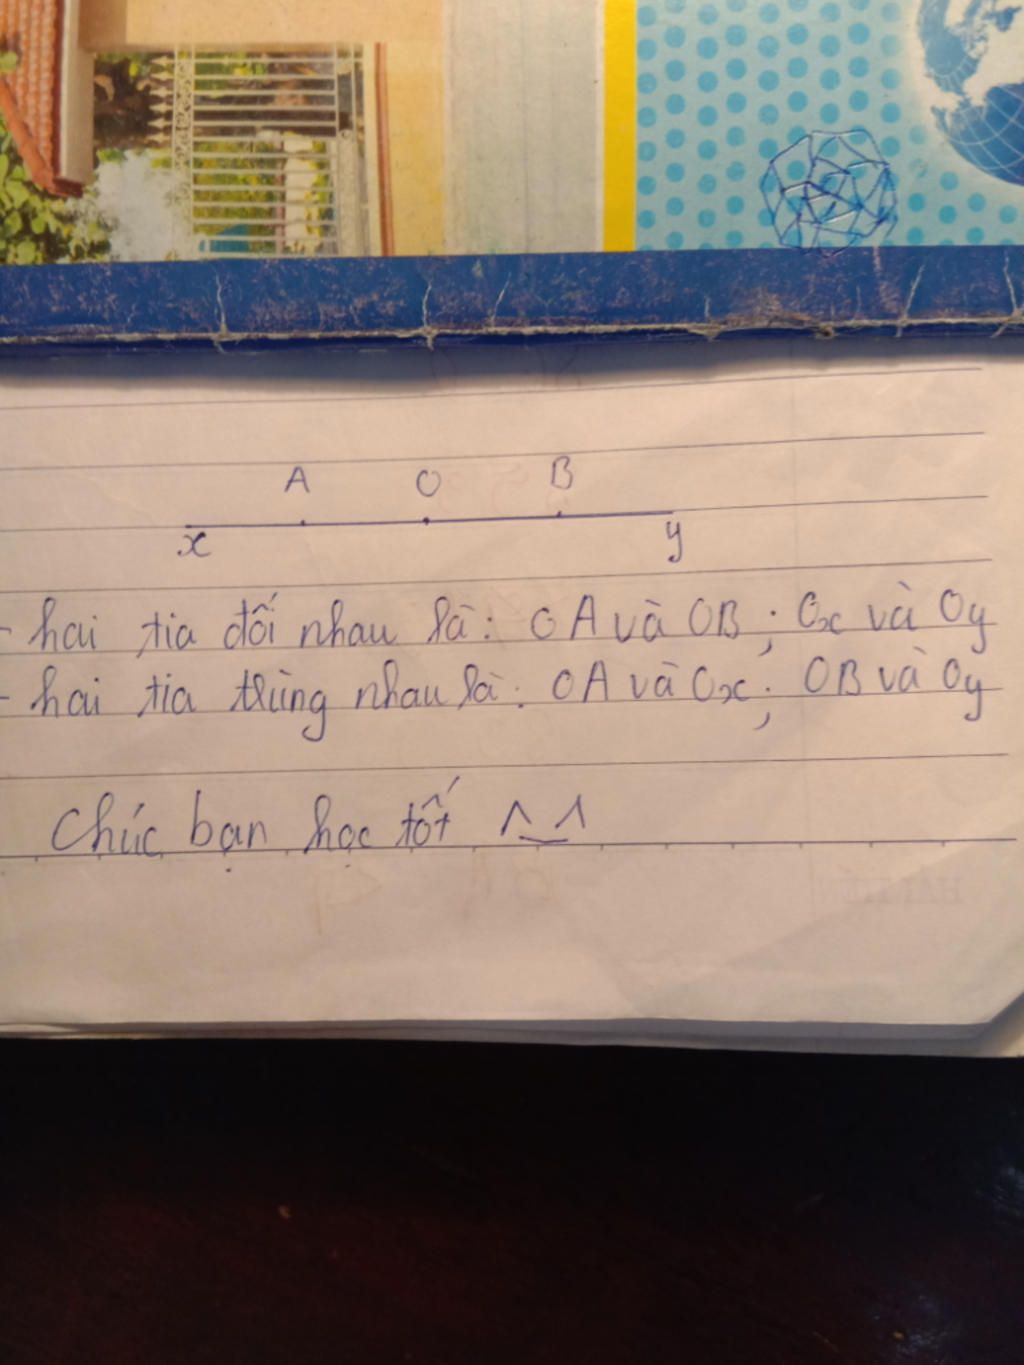 A O B
x y
- hai tia đối nhau là: OA và OB; Ox và Oy
- hai tia trùng nhau là: OA và Ox; OB và Oy
Chúc bạn học tốt ^_^